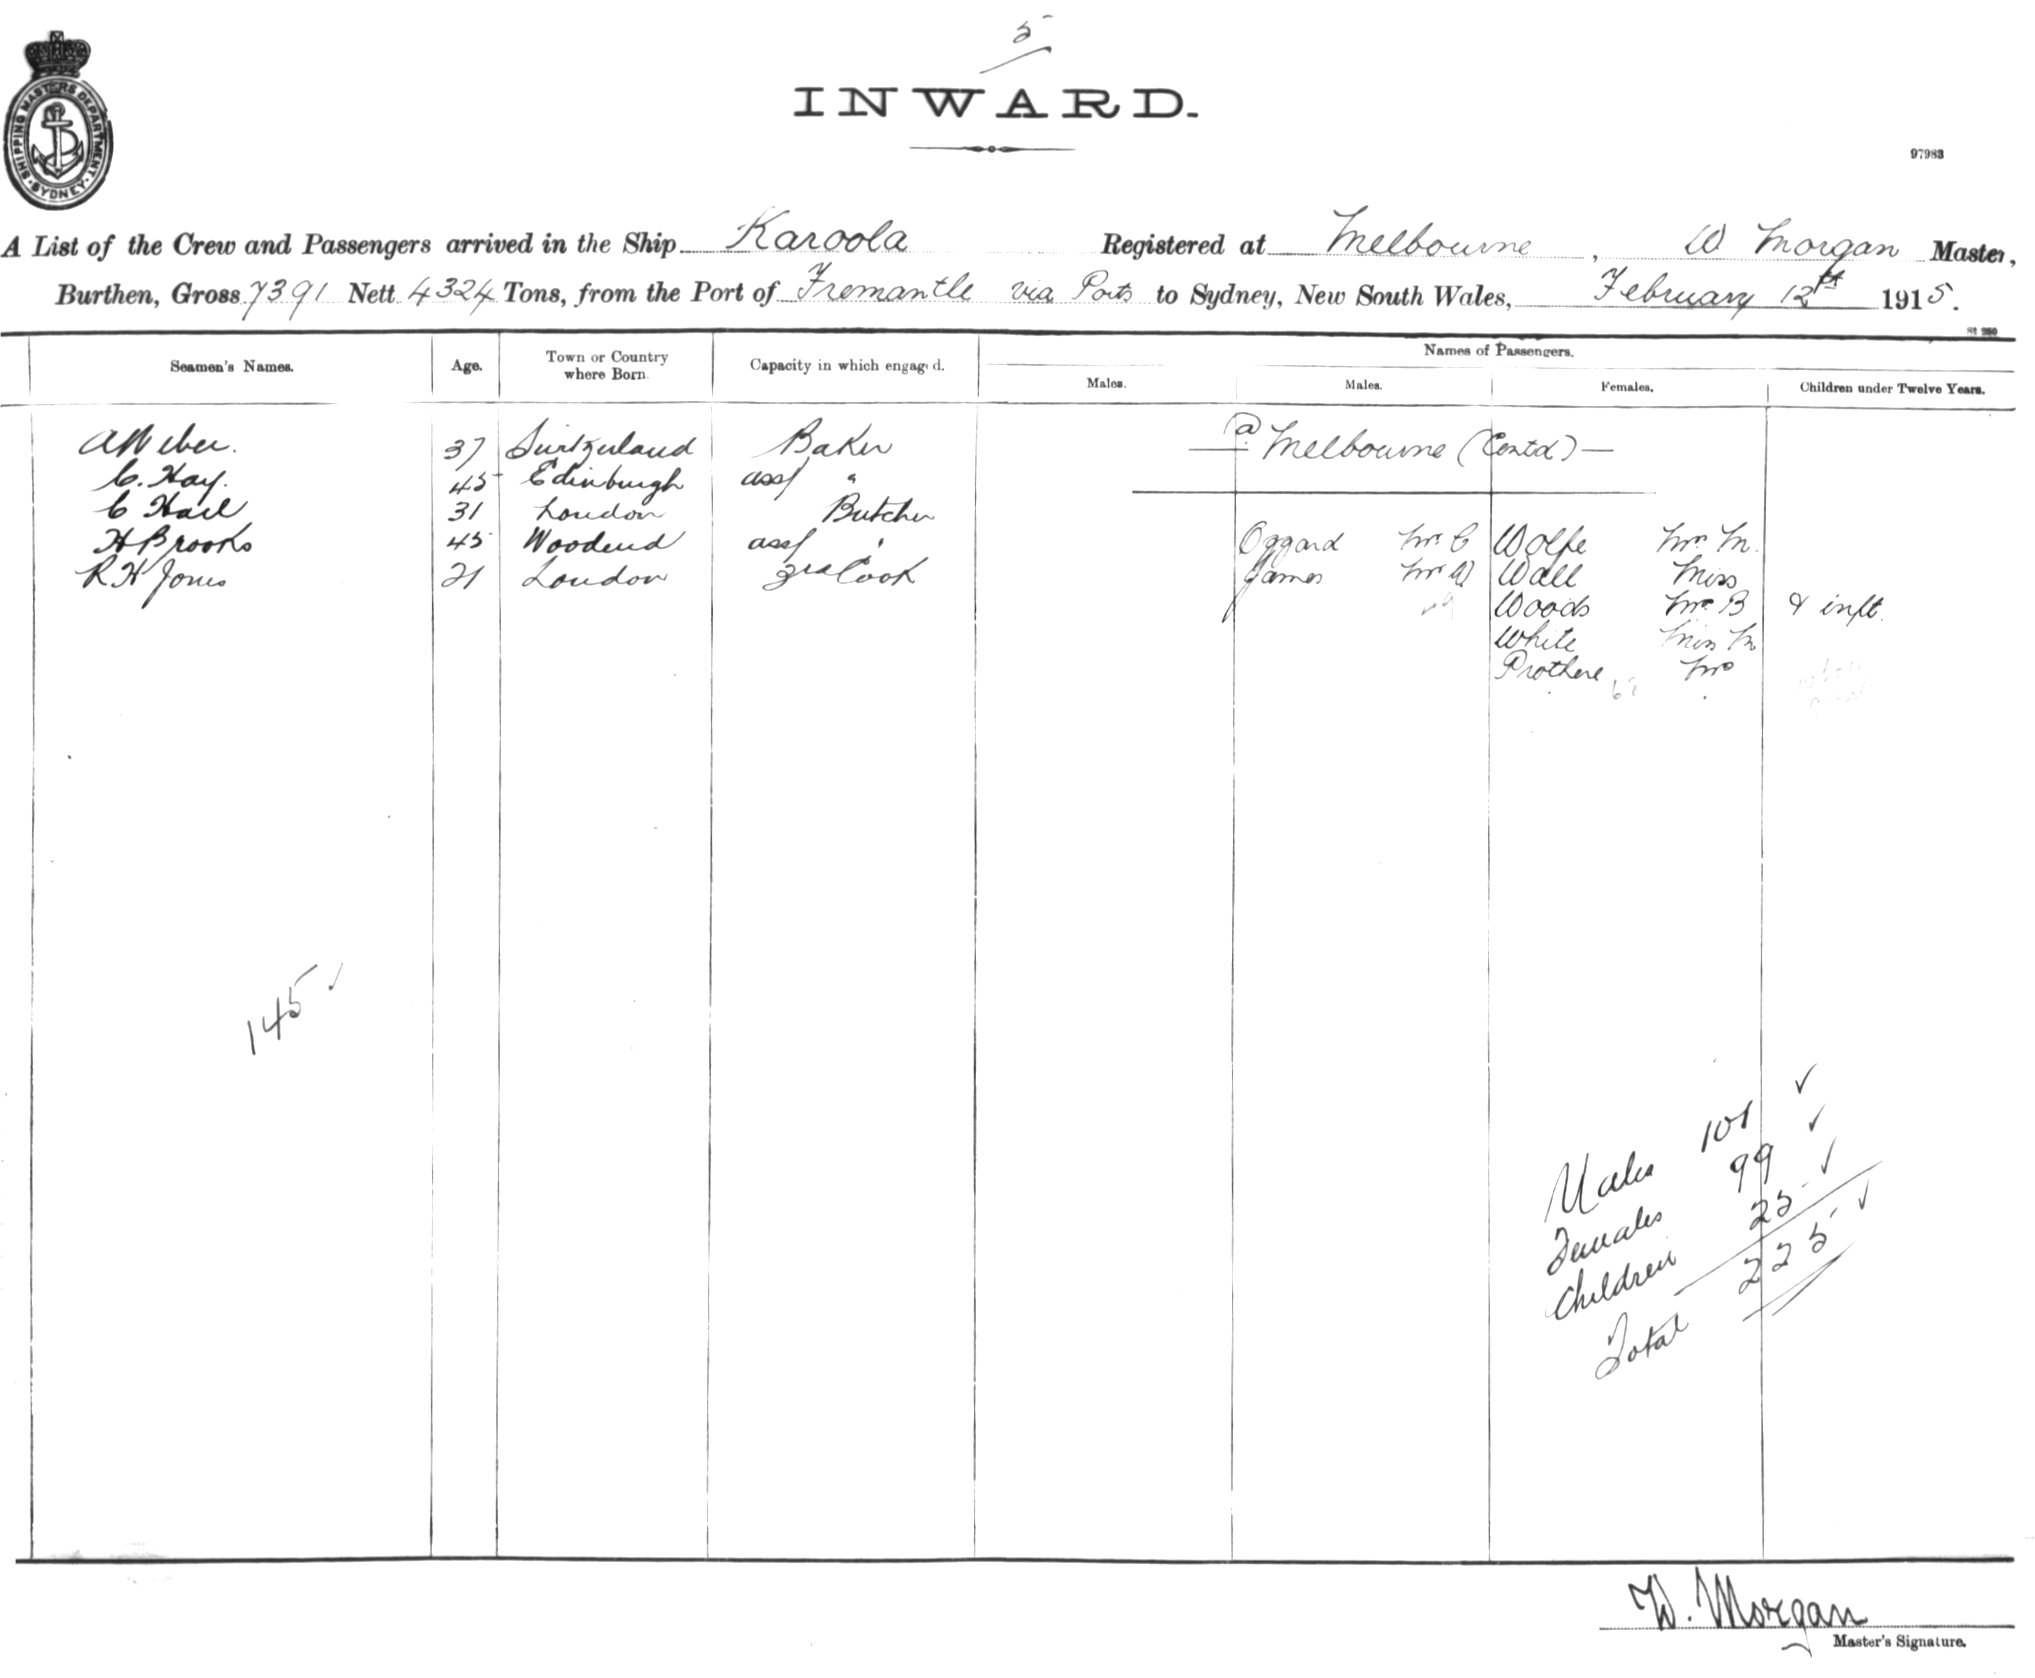 5
INWARD.
SHIPPING MASTERS DEPARTMENT SYDNEY
97983
A List of the Crew and Passengers arrived in the Ship Karoola Registered at Melbourne, W Morgan Master,
Burthen, Gross 7391 Nett 4324 Tons, from the Port of Fremantle via Ports to Sydney, New South Wales, February 12th 1915.
St 260
Seamen's Names. Age. Town or Country where Born Capacity in which engaged. Names of Passengers.
Males. Males. Females. Children under Twelve Years.
A Weber. 37 Switzerland Baker @ Melbourne (Contd)
C. Hay. 45 Edinburgh asst "
C Hail 31 London Butcher
H Brooks 45 Woodend asst " Oggard Mr C Wolfe Mrs M.
R H Jones 21 London 3rd Cook James Mr W Wall Miss
Woods Mrs B & inft.
White Miss M
Prothere Mrs
145 ✓
Males 101 ✓
Females 99 ✓
Children 25 ✓
Total 225 ✓
W. Morgan
Master's Signature.